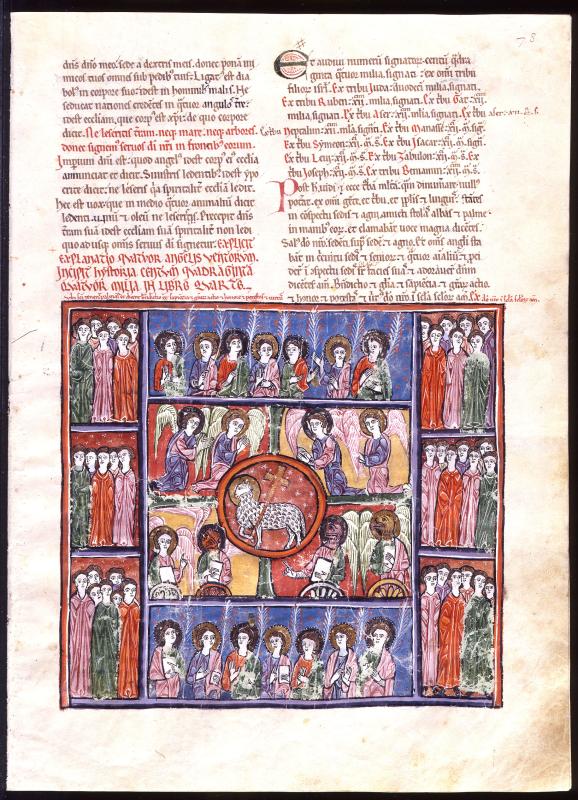 78
dn̄s dn̄o meo. sede a dextris meis. donec ponā ini
micos tuos omnes sub pedib; tuis. Ligat; est dia
bol; in corpore suo. idest in hominib; malis. Ne
seducat nationes credētes in q̄tuor angulis tr̄e.
idest ecc̄iam, que corp; est xp̄i. de quo corpore
dicit. Ne leseritis t̄ram. neq; mare. neq; arbores.
donec signem; seruos dī nr̄i in frontib; eorum.
Impium dn̄i est. quod angl's idest corp; ei; ecc̄ia
annunciat et dicit. Sinistris ledentib; idest ypo
crite dicit: ne leseris q̄a spiritalit̄ ecc̄ia ledit.
Hec est uox que in medio q̄tuor animaliū dicit
uinū & oleū ne leseritis. Precepit dn̄s
t̄ram suā idest ecc̄iam suā spiritalit̄ non ledi
quo ad usq; om̄is seruus dī signetur. EXPLICIT
EXPLANATIO QVATVOR ANGELIS VENTORVM.
INCIPIT HYSTORIA CENTVM QVADRAGINTA
QVATVOR MILIA IN LIBRO QVARTO.
Et audiui numerū signatoꝝ centū q̄dra
ginta q̄tuor milia. signati. ex om̄i tribu
filioꝝ isrl̄. Ex tribu Iuda: duodeci milia. signati.
Ex tribu Ruben: xii. milia. signati. Ex tbu Gat: xii.
milia. signati. Ex tbu Aser: xii. milia. signati. Ex tbu
Ex tbu Neptalim: xii. mīla. signati. Ex tbu Manasse: xii. m̄. sig.
Ex tbu Symeon: xii. m̄. s. Ex tbu Isacar: xii. m̄. sig.
Ex tbu Leui: xii. m̄. s. Ex tbu Zabulon: xii. m̄. s. Ex
tbu Ioseph: xii. m̄. s. Ex tribu Beniamin: xii. m̄. s.
Post h̄ uidi. & ecce t̄ba mltā. qm̄ dinumare null;
potat. ex om̄i gēte. et tbu. et pplis et linguis. stātes
in cōspectu sedis et agni. amicti stolis albis & palme
in manib; eoꝝ. et clamabāt uoce magna dicētes.
Sal; dō nr̄o. sedēti sup̄ sede. & agno. Et om̄s angli sta
bāt in cc̄uitu sedis & senioꝝ. & q̄tuor aīaliū. & p̄ci
der̄ ī spectu sedis sup̄ facies suas & adorauer̄ dn̄m
dicētes am̄. Bn̄dictio & gl̄a & sapiētia & gr̄aꝝ actio
& honor & potestas & uirt; dō nr̄o ī scl̄a scl̄oꝝ am̄.